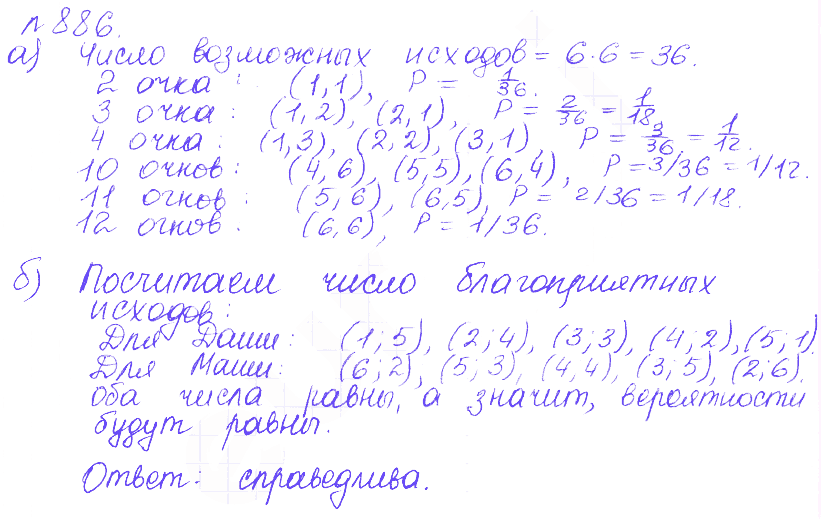 №886.
а) Число возможных исходов = 6·6 = 36.
2 очка: (1,1), P = 1/36.
3 очка: (1,2), (2,1), P = 2/36 = 1/18.
4 очка: (1,3), (2,2), (3,1), P = 3/36 = 1/12.
10 очков: (4,6), (5,5), (6,4), P = 3/36 = 1/12.
11 очков: (5,6), (6,5), P = 2/36 = 1/18.
12 очков. (6,6), P = 1/36.
б) Посчитаем число благоприятных
исходов:
Для Даши: (1;5), (2;4), (3;3), (4;2), (5;1).
Для Маши: (6;2), (5;3), (4,4), (3;5), (2;6).
оба числа равны, а значит, вероятности
будут равны.
Ответ: справедлива.